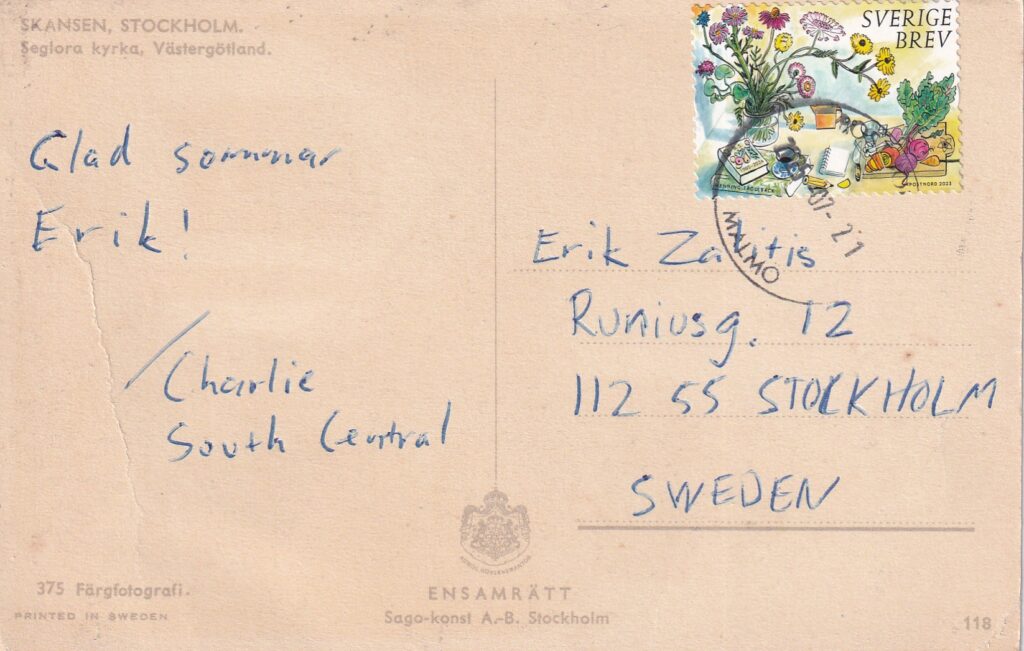 SKANSEN, STOCKHOLM.
Seglora kyrka, Västergötland.
SVERIGE
BREV
POSTNORD 2023
07-21
MALMÖ
Glad sommar
Erik!
/Charlie
South Central
Erik Zalitis
Runiusg. 12
112 55 STOCKHOLM
SWEDEN
375 Färgfotografi.
PRINTED IN SWEDEN
ENSAMRÄTT
Sago-konst A.-B. Stockholm
118